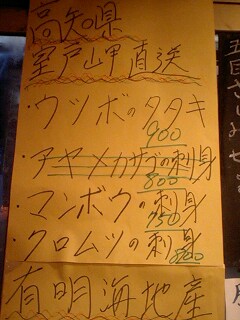 高知県
室戸岬直送
・ウツボのタタキ
900
・アヤメカサゴの刺身
800
・マンボウの刺身
750
・クロムツの刺身
有明海地産